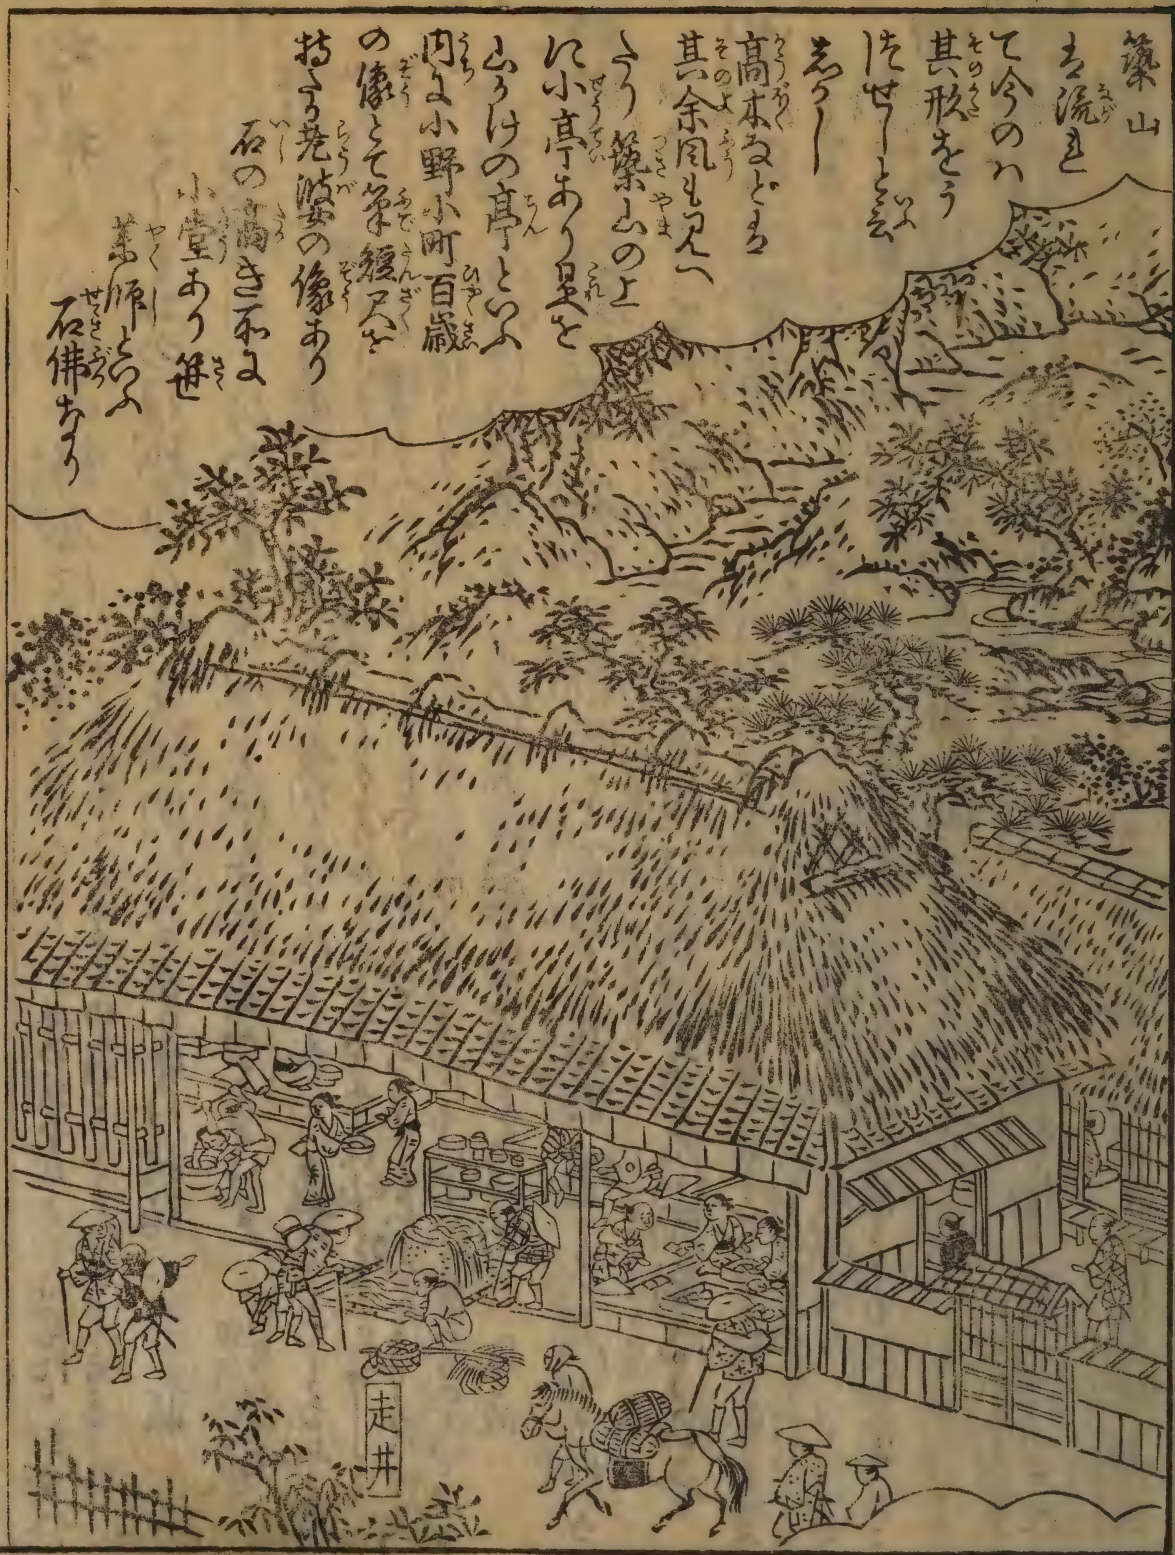 築山
は流れ
て今のハ
其形をう
つせしと云
志かし
高木などは
其余風も見へ
たり築山の上
に小亭あり是を
山かけの亭といふ
内に小野小町百歳
の像とて筆短尺を
持たる老婆の像あり
石の高き所に
小堂あり笹
薬師といふ
石佛なり
走井